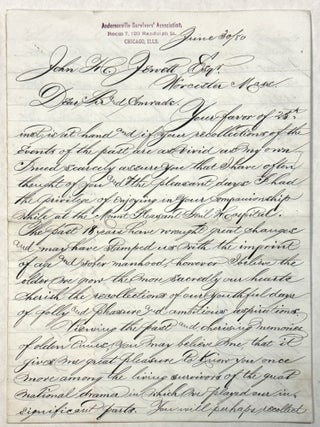 Andersonville Survivors' Association,
Room 7, 120 Randolph St.
CHICAGO, ILLS.
June 30/80
John H. C. Jewett Esqr.
Worcester Mass.
Dear Sir and Comrade
Your favor of 25th
inst. is at hand and if your recollections of the
events of the past are as vivid as my own
I need scarcely assure you that I have often
thought of you and the pleasant days I had
the privilege of enjoying in your companionship
while at the Mount Pleasant Gen'l Hospital.
The past 18 years have wrought great changes
and may have stamped us with the imprint
of age and sober manhood, however I believe the
older we grow the more sacredly our hearts
cherish the recollections of our youthful days
of folly and pleasure and ambitious aspirations.
Viewing the past and cherishing memories
of olden times you may believe me that it
gives me great pleasure to know you once
more among the living survivors of the great
national drama in which we played our in-
significant parts. You will perhaps recollect